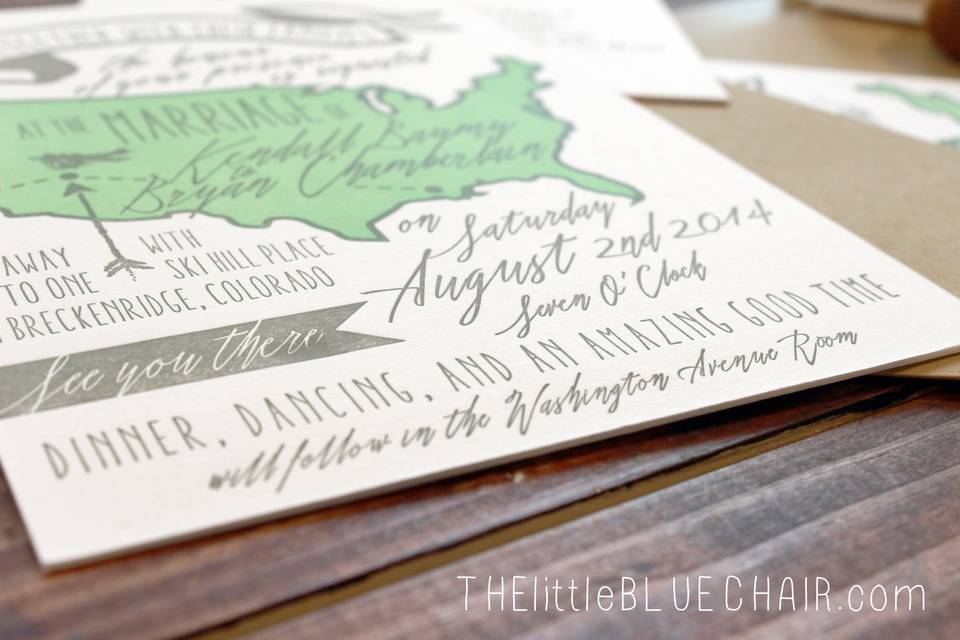 WITH THEIR FAMILIES
the honour
of your presence
is requested
AT THE MARRIAGE OF
Kendall Baymy
to
Bryan Chamberlain
on Saturday
August 2nd 2014
Seven O'Clock
AWAY WITH
TO ONE SKI HILL PLACE
BRECKENRIDGE, COLORADO
See you there
DINNER, DANCING, AND AN AMAZING GOOD TIME
will follow in the Washington Avenue Room
THElittleBLUECHAIR.com